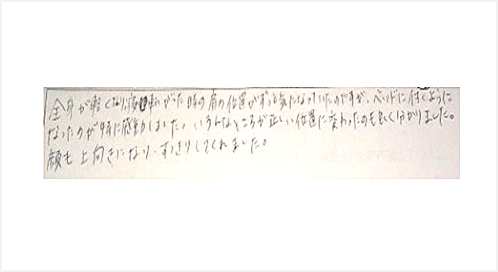 全身が軽くなり、寝転がった時の肩の位置がずっと気になっていたのですが、ベッドに付くように
なったのが特に感動しました。いろんなところが正しい位置に変わったのも良く分かりました。
顔も上向きになり、すっきりしてくれました。